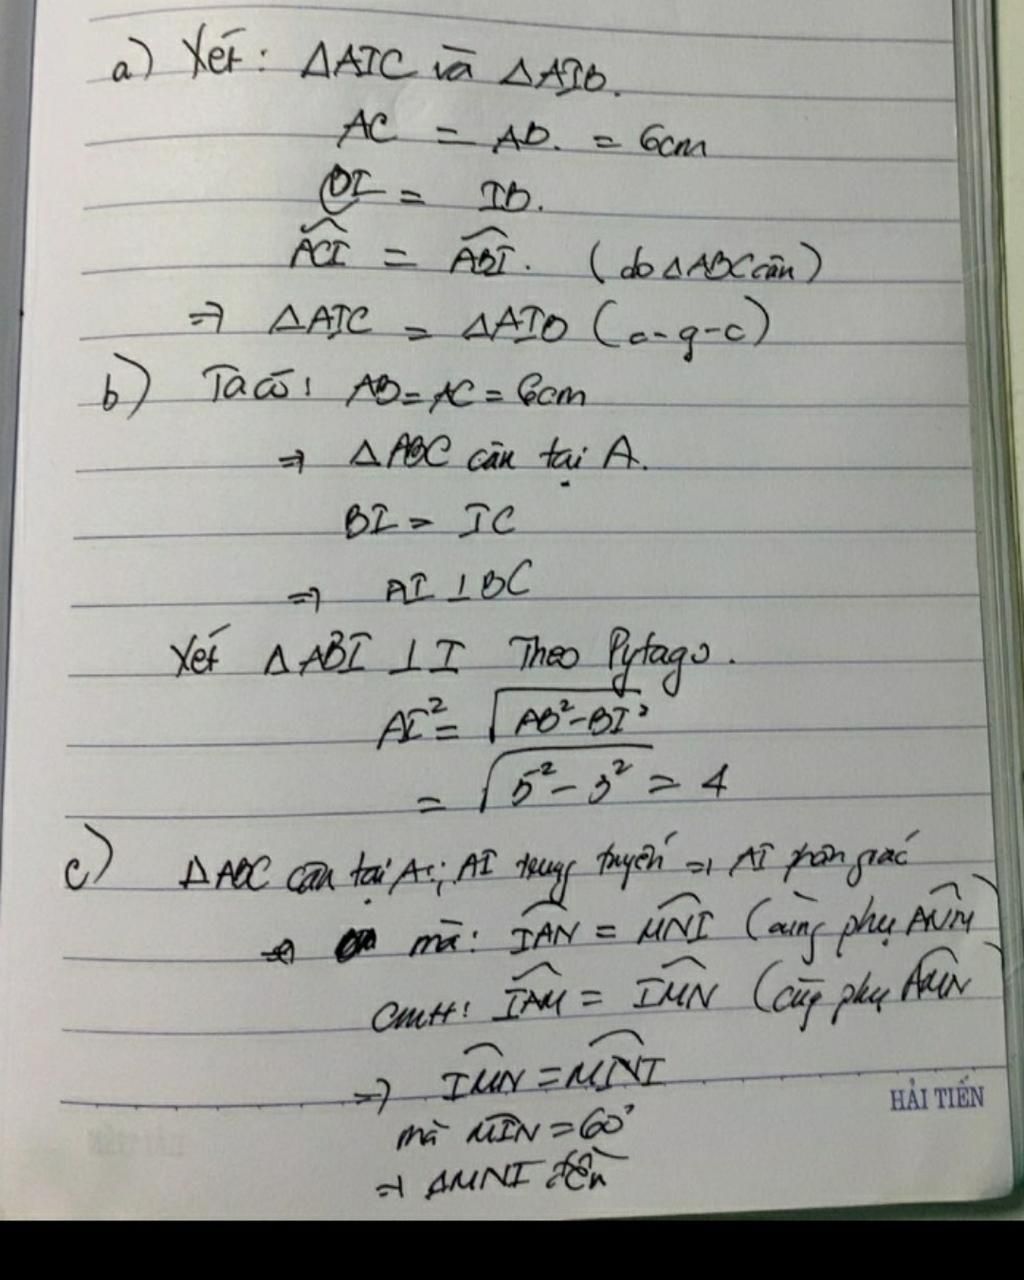 a) Xét: ΔAIC và ΔAIB.
AC = AB. = 6cm
BI = IB.
ACI = ABI. (do ΔABC cân)
⇒ ΔAIC = ΔAIB (c-g-c)
b) Ta có: AB = AC = 6cm
⇒ ΔABC cân tại A.
BI = IC
⇒ AI ⊥ BC
Xét ΔABI ⊥ I Theo Pytago.
AI² = √AB²-BI²
= √5²-3² = 4
c) ΔABC cân tại A; AI trung tuyến ⇒ AI phân giác
⇒ mà: IAN = MNI (cùng phụ ANM)
CMTT: IAM = IMN (cùng phụ AMN)
⇒ IMN = MNI
HẢI TIẾN
mà MIN = 60°
⇒ ΔMNI đều